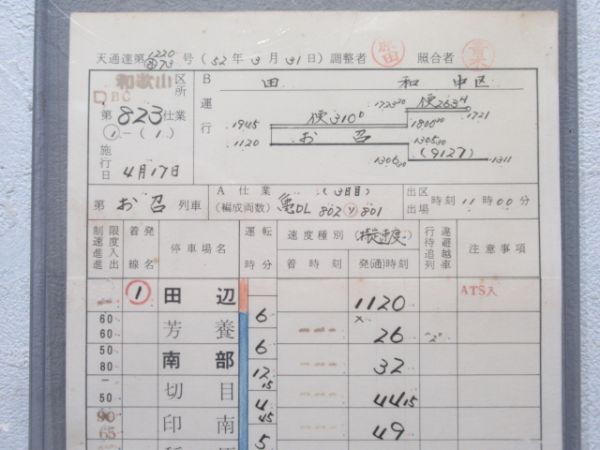 天通達第1220号 (52年3月31日) 調整者 照合者
和歌山区所
BC
第823仕業
①-(1.)
施行日 4月17日
B 田 和 中区
運行
1723 20 便263H 1721
1945 便310D 1800 00
1120 お召 1305 30
1306 00 (9127) 1311
第 お召 列車
A 仕業 (3日目)
(編成両数) DL 802 801
出区 出場 時刻 11時00分
制限速度 進入 進出
着発線名
停車場名
運転時分
速度種別 (特定速度)
着時刻 発(通)時刻
行違 待避 追越 列車
注意事項
① 田辺 1120 ATS入
6
60 60 芳養 26 "2"
6
50 80 南部 32
12 15
- 50 切目 44 15
4 45
90 65 印南 49
5